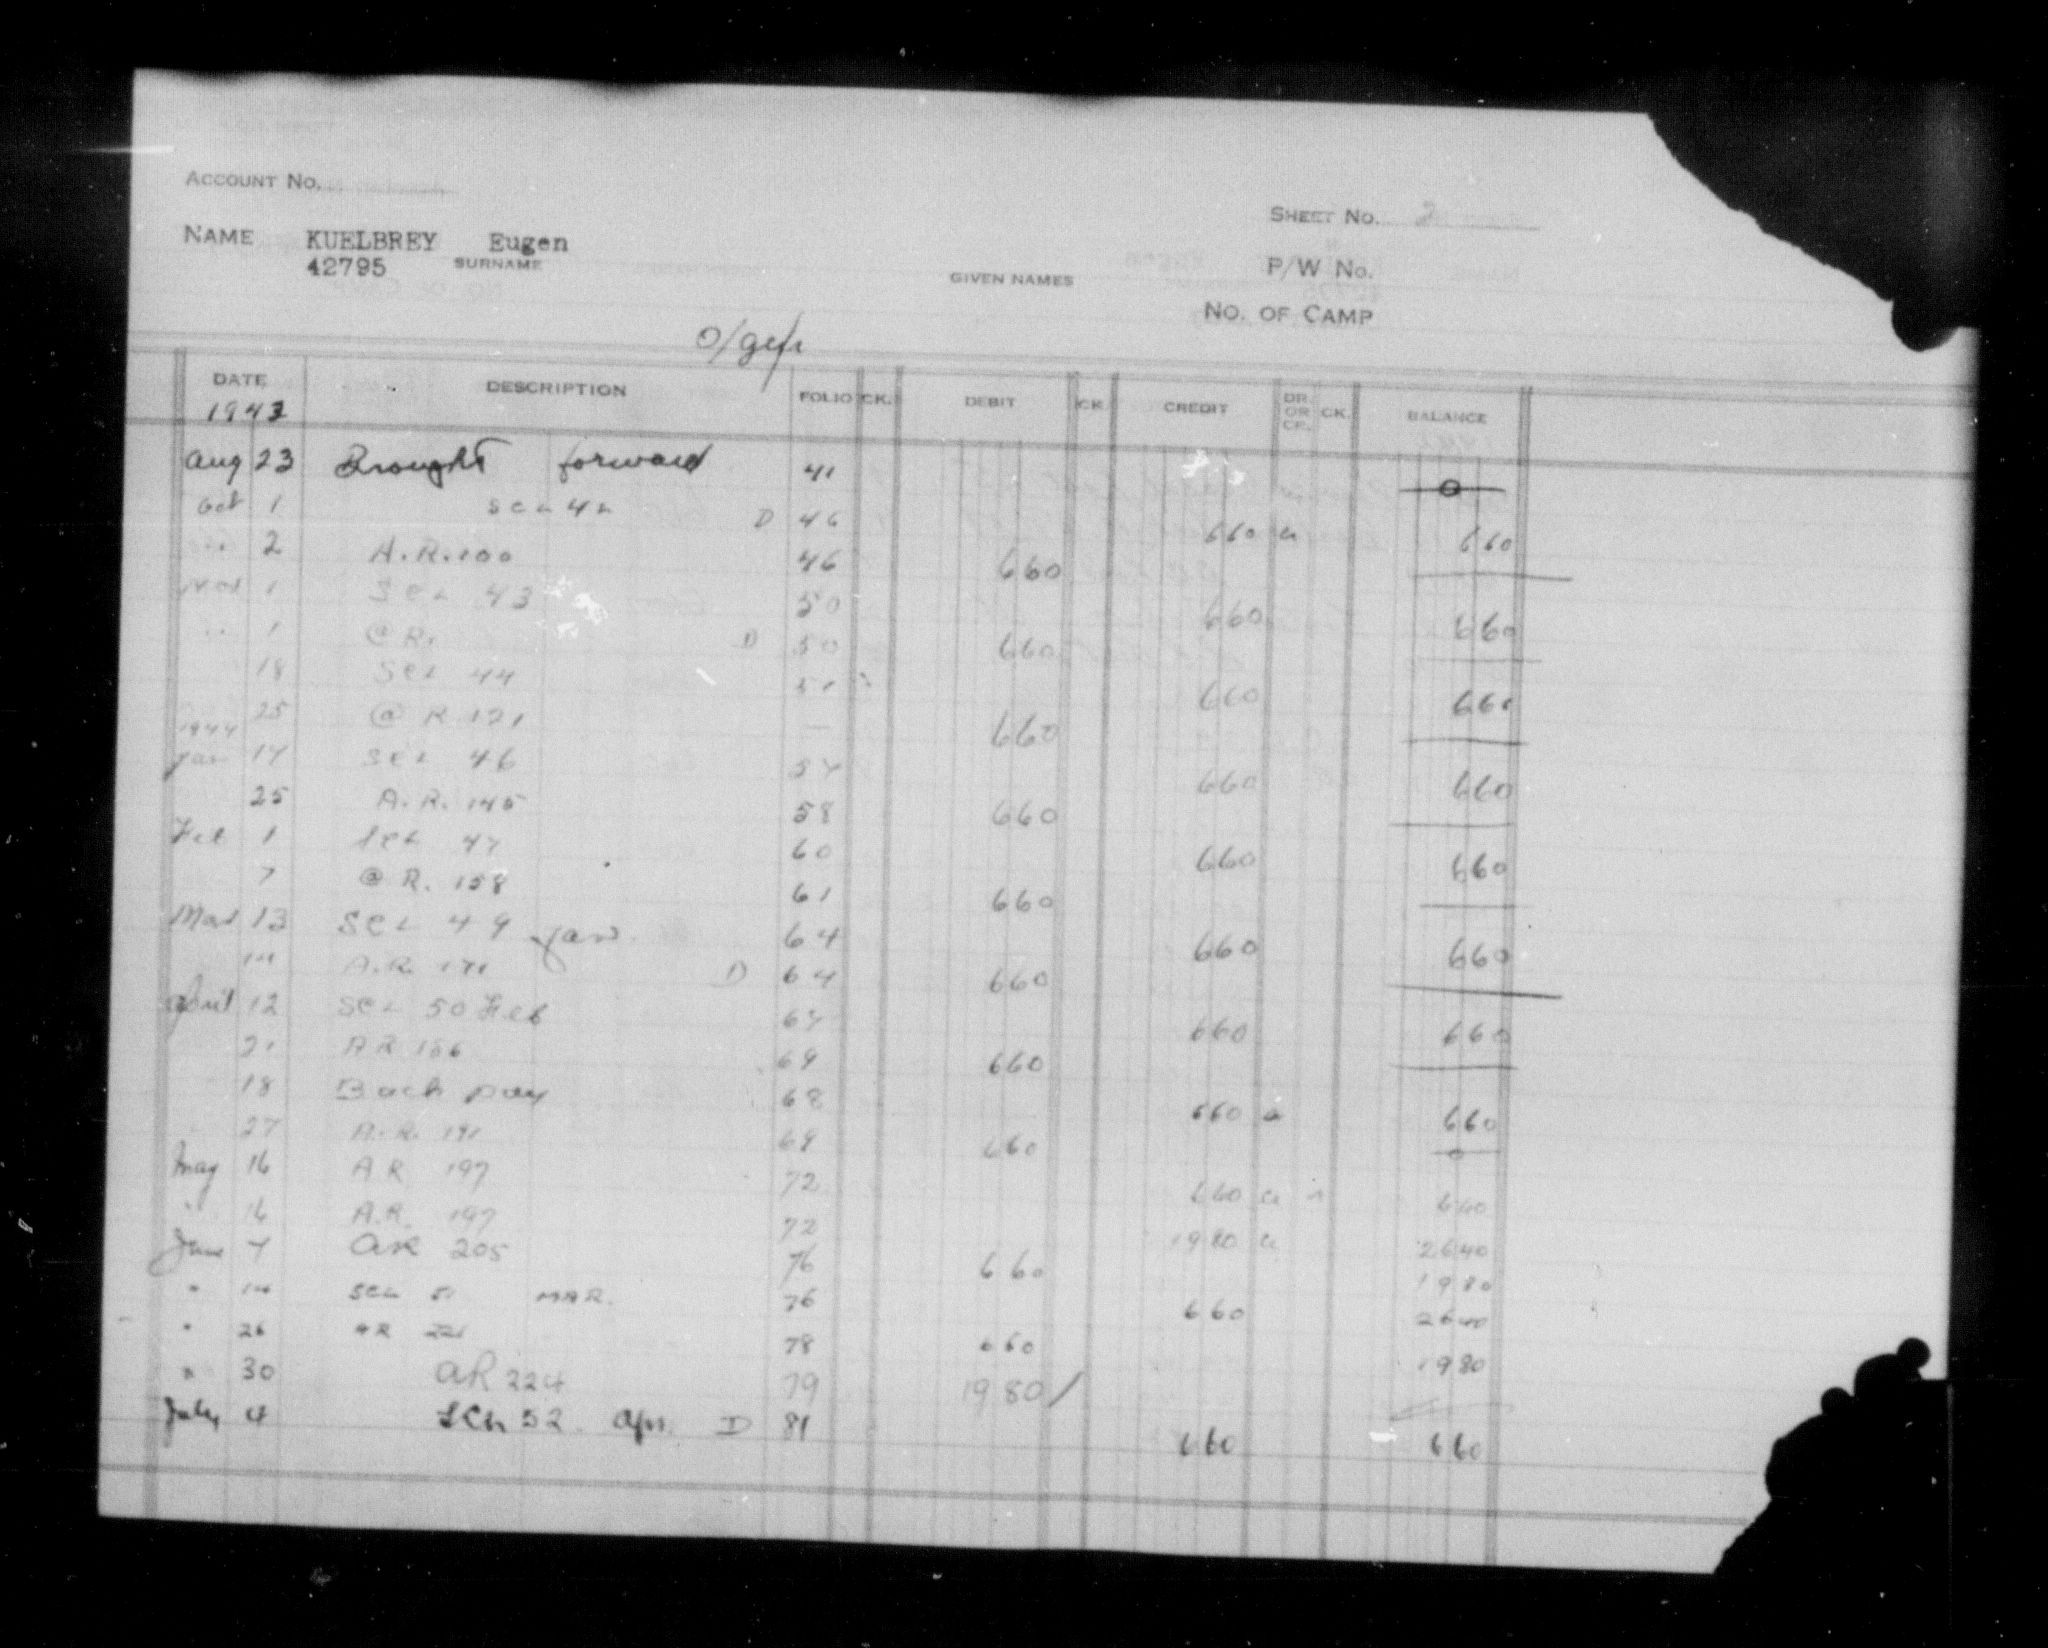 ACCOUNT No.
SHEET No. 2
NAME KUELBREY Eugen
42795 SURNAME GIVEN NAMES P/W No.
NO. OF CAMP
DATE DESCRIPTION FOLIO CK. DEBIT CK. CREDIT DR. OR CR. CK. BALANCE
1943
Aug 23 Brought forward 41 0
Oct 1 SCL 42 D 46 660 660
" 2 A.R. 100 46 660
Nov 1 SCL 43 50 660 660
" 1 @R. D 50 660
18 SCL 44 51 660 660
25 @R 121 — 660
1944
Jan 14 SCL 46 57 660 660
25 A.R. 145 58 660
Feb 1 SCL 47 60 660 660
7 @R. 158 61 660
Mar 13 SCL 49 Jan 64 660 660
14 A.R. 171 D 64 660
April 12 SCL 50 Feb 67 660 660
21 AR 186 69 660
18 Back pay 68 660 660
27 A.R. 191 69 660 0
May 16 AR 197 72 660 660
" 16 A.R. 197 72 1980 2640
June 7 AR 205 76 660 1980
" 14 SCL 51 MAR. 76 660 2640
" 26 AR 221 78 660 1980
" 30 AR 224 79 1980/
July 4 SCL 52. Apr. D 81 660 660